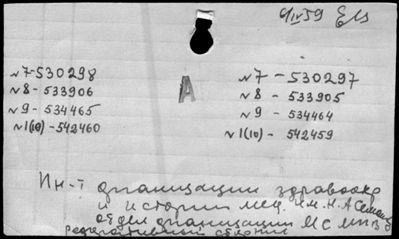 9/IV 59
№7-530298
№8-533906
№9-534465
№1(10)-542460
А
№7-530297
№8-533905
№9-534464
№1(10)-542459
Ин-т организации здравоохр
и истории мед. им. Н.А Семашко
отдел организации
реферативный сборник